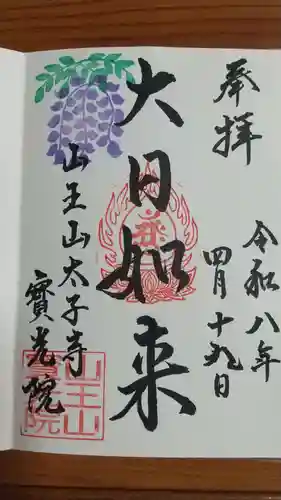 奉拝
令和八年
四月十九日
大日如来
山王山太子寺
寳光院
山王山
寳光院